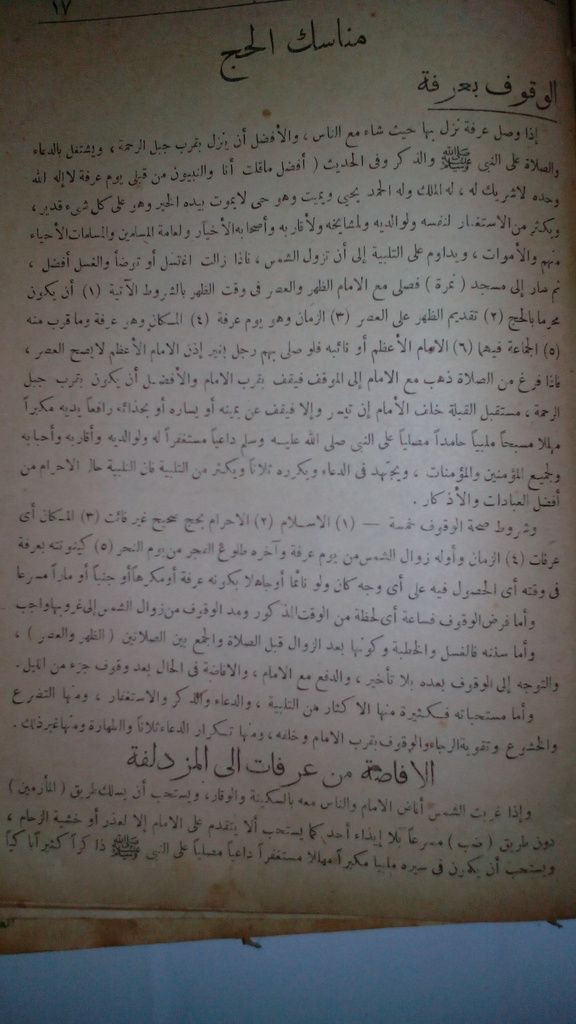 ١٧
مناسك الحج
الوقوف بعرفة
إذا وصل عرفة نزل بها حيث شاء مع الناس ، والأفضل أن ينزل بقرب جبل الرحمة ، ويشتغل بالدعاء
والصلاة على النبي ﷺ والذكر وفى الحديث ( أفضل ماقلت أنا والنبيون من قبلى يوم عرفة لا إله الله
وحده لاشريك له ، له الملك وله الحمد يحيى ويميت وهو حى لايموت بيده الخير وهو على كل شىء قدير ،
ويكثر من الاستغفار لنفسه ولوالديه ولمشايخه ولأقاربه وأصحابه الأخيار ولعامة المسلمين والمسلمات الأحياء
منهم والأموات ، ويداوم على التلبية إلى أن تزول الشمس ، فاذا زالت اغتسل أو توضأ والغسل أفضل ،
ثم صار إلى مسجد ( نمرة ) فصلى مع الامام الظهر والعصر فى وقت الظهر بالشروط الآتية (١) أن يكون
محرما بالحج (٢) تقديم الظهر على العصر (٣) الزمان وهو يوم عرفة (٤) المكان وهو عرفة وما قرب منه
(٥) الجماعة فيهما (٦) الامام الأعظم أو نائبه فلو صلى بهم رجل بغير إذن الامام الأعظم لايصح العصر ،
فاذا فرغ من الصلاة ذهب مع الامام إلى الموقف فيقف بقرب الامام والأفضل أن يكون بقرب جبل
الرحمة ، مستقبل القبلة خلف الأمام إن تيسر وإلا فيقف عن يمينه أو يساره أو بحذائه رافعاً يديه مكبراً
مهللا مسبحاً ملبياً حامداً مصلياً على النبي صلى الله عليه وسلم داعياً مستغفراً له ولوالديه وأقاربه وأحبابه
ولجميع المؤمنين والمؤمنات ، ويجتهد فى الدعاء ويكرره ثلاثاً ويكثر من التلبية فان التلبية حال الاحرام من
أفضل العبادات والأذكار .
وشروط صحة الوقوف خمسة — (١) الاسلام (٢) الاحرام بحج صحيح غير فائت (٣) المكان أى
عرفات (٤) الزمان وأوله زوال الشمس من يوم عرفة وآخره طلوع الفجر من يوم النحر (٥) كينونته بعرفة
فى وقته أى الحصول فيه على أى وجه كان ولو نائما أو جاهلا بكونه عرفة أو مكرها أو جنبا أو ماراً مسرعا
وأما فرض الوقوف فساعة أى لحظة من الوقت المذكور ومد الوقوف من زوال الشمس إلى غروبها واجب
وأما سننه فالغسل والخطبة وكونها بعد الزوال قبل الصلاة والجمع بين الصلاتين ( الظهر والعصر ) ،
والتوجه إلى الوقوف بعده بلا تأخير ، والدفع مع الامام ، والافاضة فى الحال بعد وقوف جزء من الليل .
وأما مستحباته فكثيرة منها الاكثار من التلبية ، والدعاء والذكر والاستغفار ، ومنها التضرع
والخشوع وتقوية الرجاء والوقوف بقرب الامام وخلفه ، ومنها تكرار الدعاء ثلاثاً والطهارة ومنها غير ذلك .
الافاضة من عرفات الى المزدلفة
وإذا غربت الشمس أفاض الامام والناس معه بالسكينة والوقار ، ويستحب أن يسلك طريق ( المأزمين )
دون طريق ( ضب ) مسرعاً بلا إيذاء أحد كما يستحب ألا يتقدم على الامام إلا لعذر أو خشية الزحام ،
ويستحب أن يكون فى سيره ملبيا مكبراً مهللا مستغفراً داعياً مصلياً على النبي ﷺ ذاكراً كثيراً باكياً